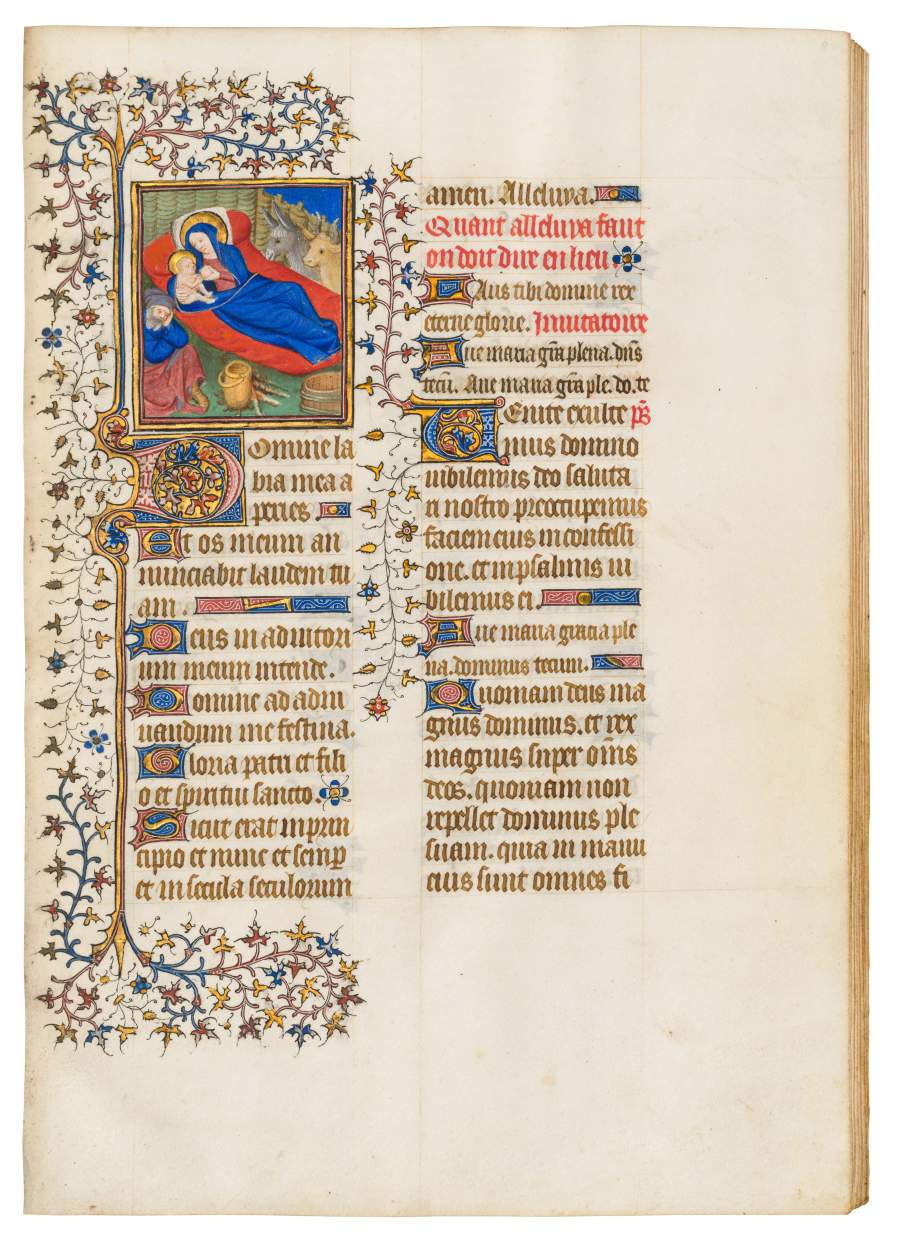 Domine la
bia mea a
peries
Et os meum an
nunciabit laudem tu
am.
Deus in adiutori
um meum intende.
Domine ad adiu
uandum me festina.
Gloria patri et fili
o et spiritui sancto.
Sicut erat in prin
cipio et nunc et semp
et in secula seculorum
amen. Alleluya.
Quant alleluya faut
on doit dire en lieu
Laus tibi domine rex
eterne glorie. Inuitatoire
Aue maria gra plena. dns
tecu. Aue maria gra ple. do. te
Venite exulte ps
mus domino
iubilemus deo saluta
ri nostro preoccupemus
faciem eius in confessi
one. et in psalmis iu
bilemus ei.
Aue maria gracia ple
na. dominus tecum.
Quoniam deus ma
gnus dominus. et rex
magnus super oms
deos. quoniam non
repellet dominus ple
suam. quia in manu
eius sunt omnes fi